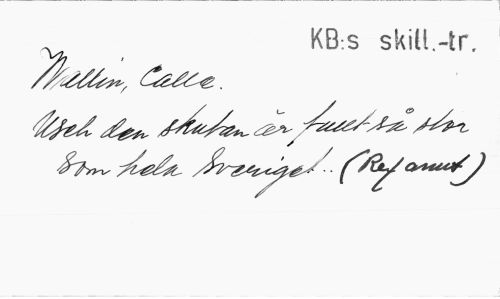 KB:s skill.-tr.
Wallin, Calle.
Usch den skutan är fullt så stor
som hela Sveriget.. (Ref annat)